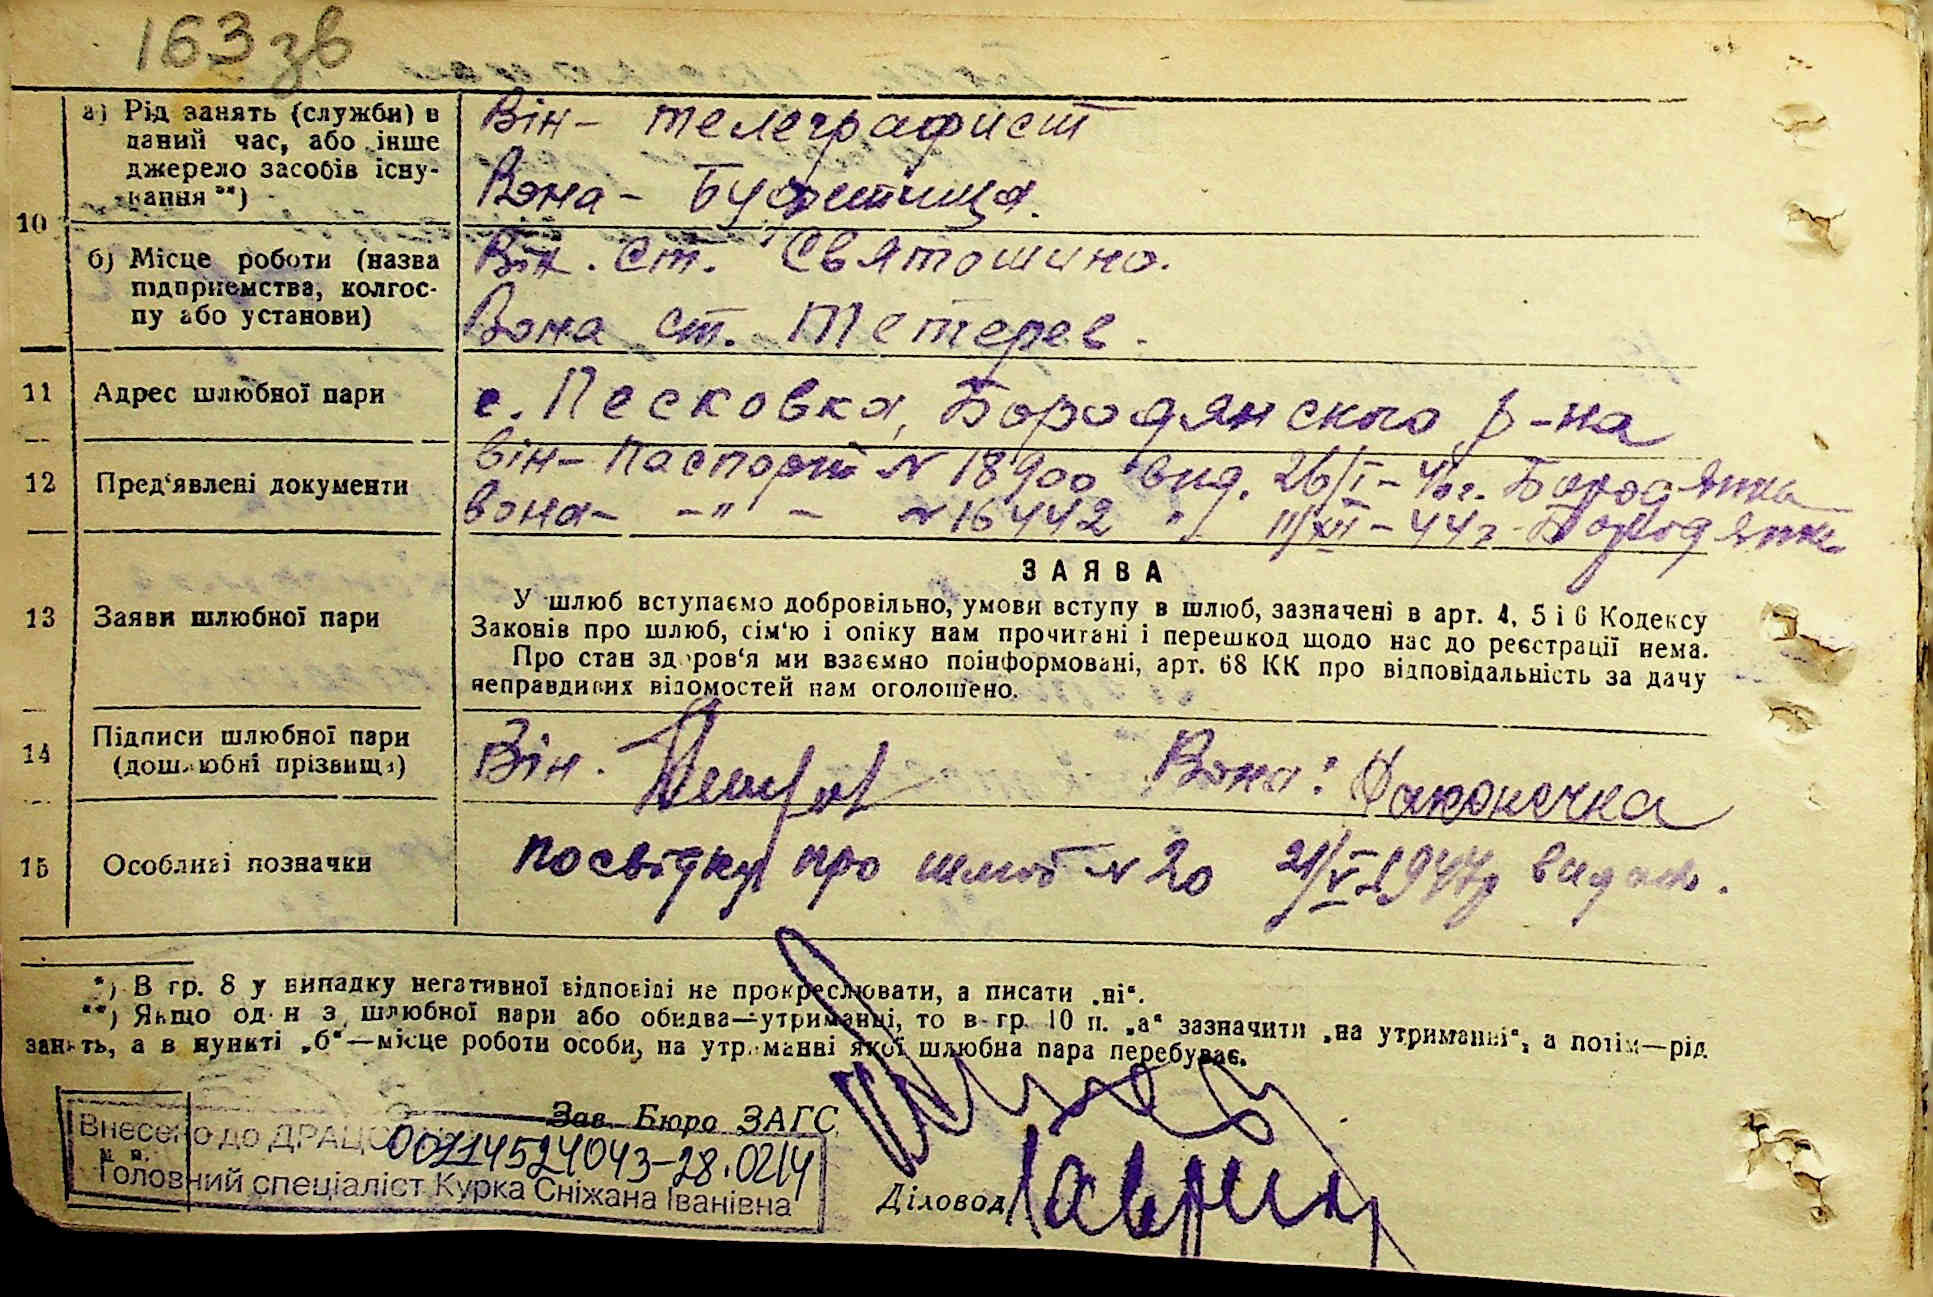 163 зв
10
а) Рід занять (служби) в
даний час, або інше
джерело засобів існу-
вання **)
Він - телеграфист
Вона - Буфетчица.
б) Місце роботи (назва
підприємства, колгос-
пу або установи)
Він. ст. Святошино.
Вона ст. Тетерев.
11 Адрес шлюбної пари
с. Песковка, Бородянского р-на
12 Пред'явлені документи
Він - Паспорт № 18900 вид. 26/I - 46г. Бородянка
Вона - -"- № 16442 " 11/XII - 44г. Бородянка
13 Заяви шлюбної пари
ЗАЯВА
У шлюб вступаємо добровільно, умови вступу в шлюб, зазначені в арт. 4, 5 і 6 Кодексу
Законів про шлюб, сім'ю і опіку нам прочитані і перешкод щодо нас до реєстрації нема.
Про стан здоров'я ми взаємно поінформовані, арт. 68 КК про відповідальність за дачу
неправдивих відомостей нам оголошено.
14 Підписи шлюбної пари
(дошлюбні прізвища)
Він. Вона:
15 Особливі позначки
посвідку про шлюб № 20 21/V 1947р видано.
*) В гр. 8 у випадку негативної відповіді не прокреслювати, а писати „ні“.
**) Якщо один з шлюбної пари або обидва—утриманці, то в гр. 10 п. „а“ зазначити „на утриманні“, а потім—рід
занять, а в пункті „б“—місце роботи особи, на утриманні якої шлюбна пара перебуває.
Зав. Бюро ЗАГС
Внесено до ДРАЦС
00214524043-28.0214
м. п.
Головний спеціаліст Курка Сніжана Іванівна
Діловод